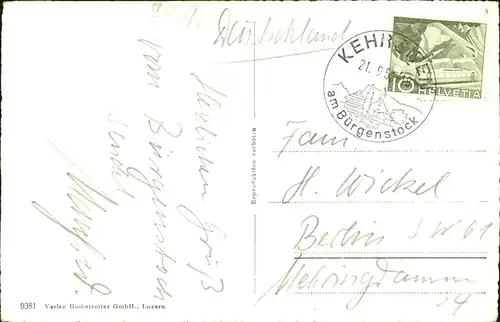 Deutschland
Herzlichen Gruß
vom Bürgenstock
sendet
Manfred.
9381 Verlag Globetrotter GmbH., Luzern
Reproduktion verboten
KEHRSITEN
21. 9. 5
am Bürgenstock
10 HELVETIA
Fam.
H. Wickel
Berlin SW 61
Mehringdamm